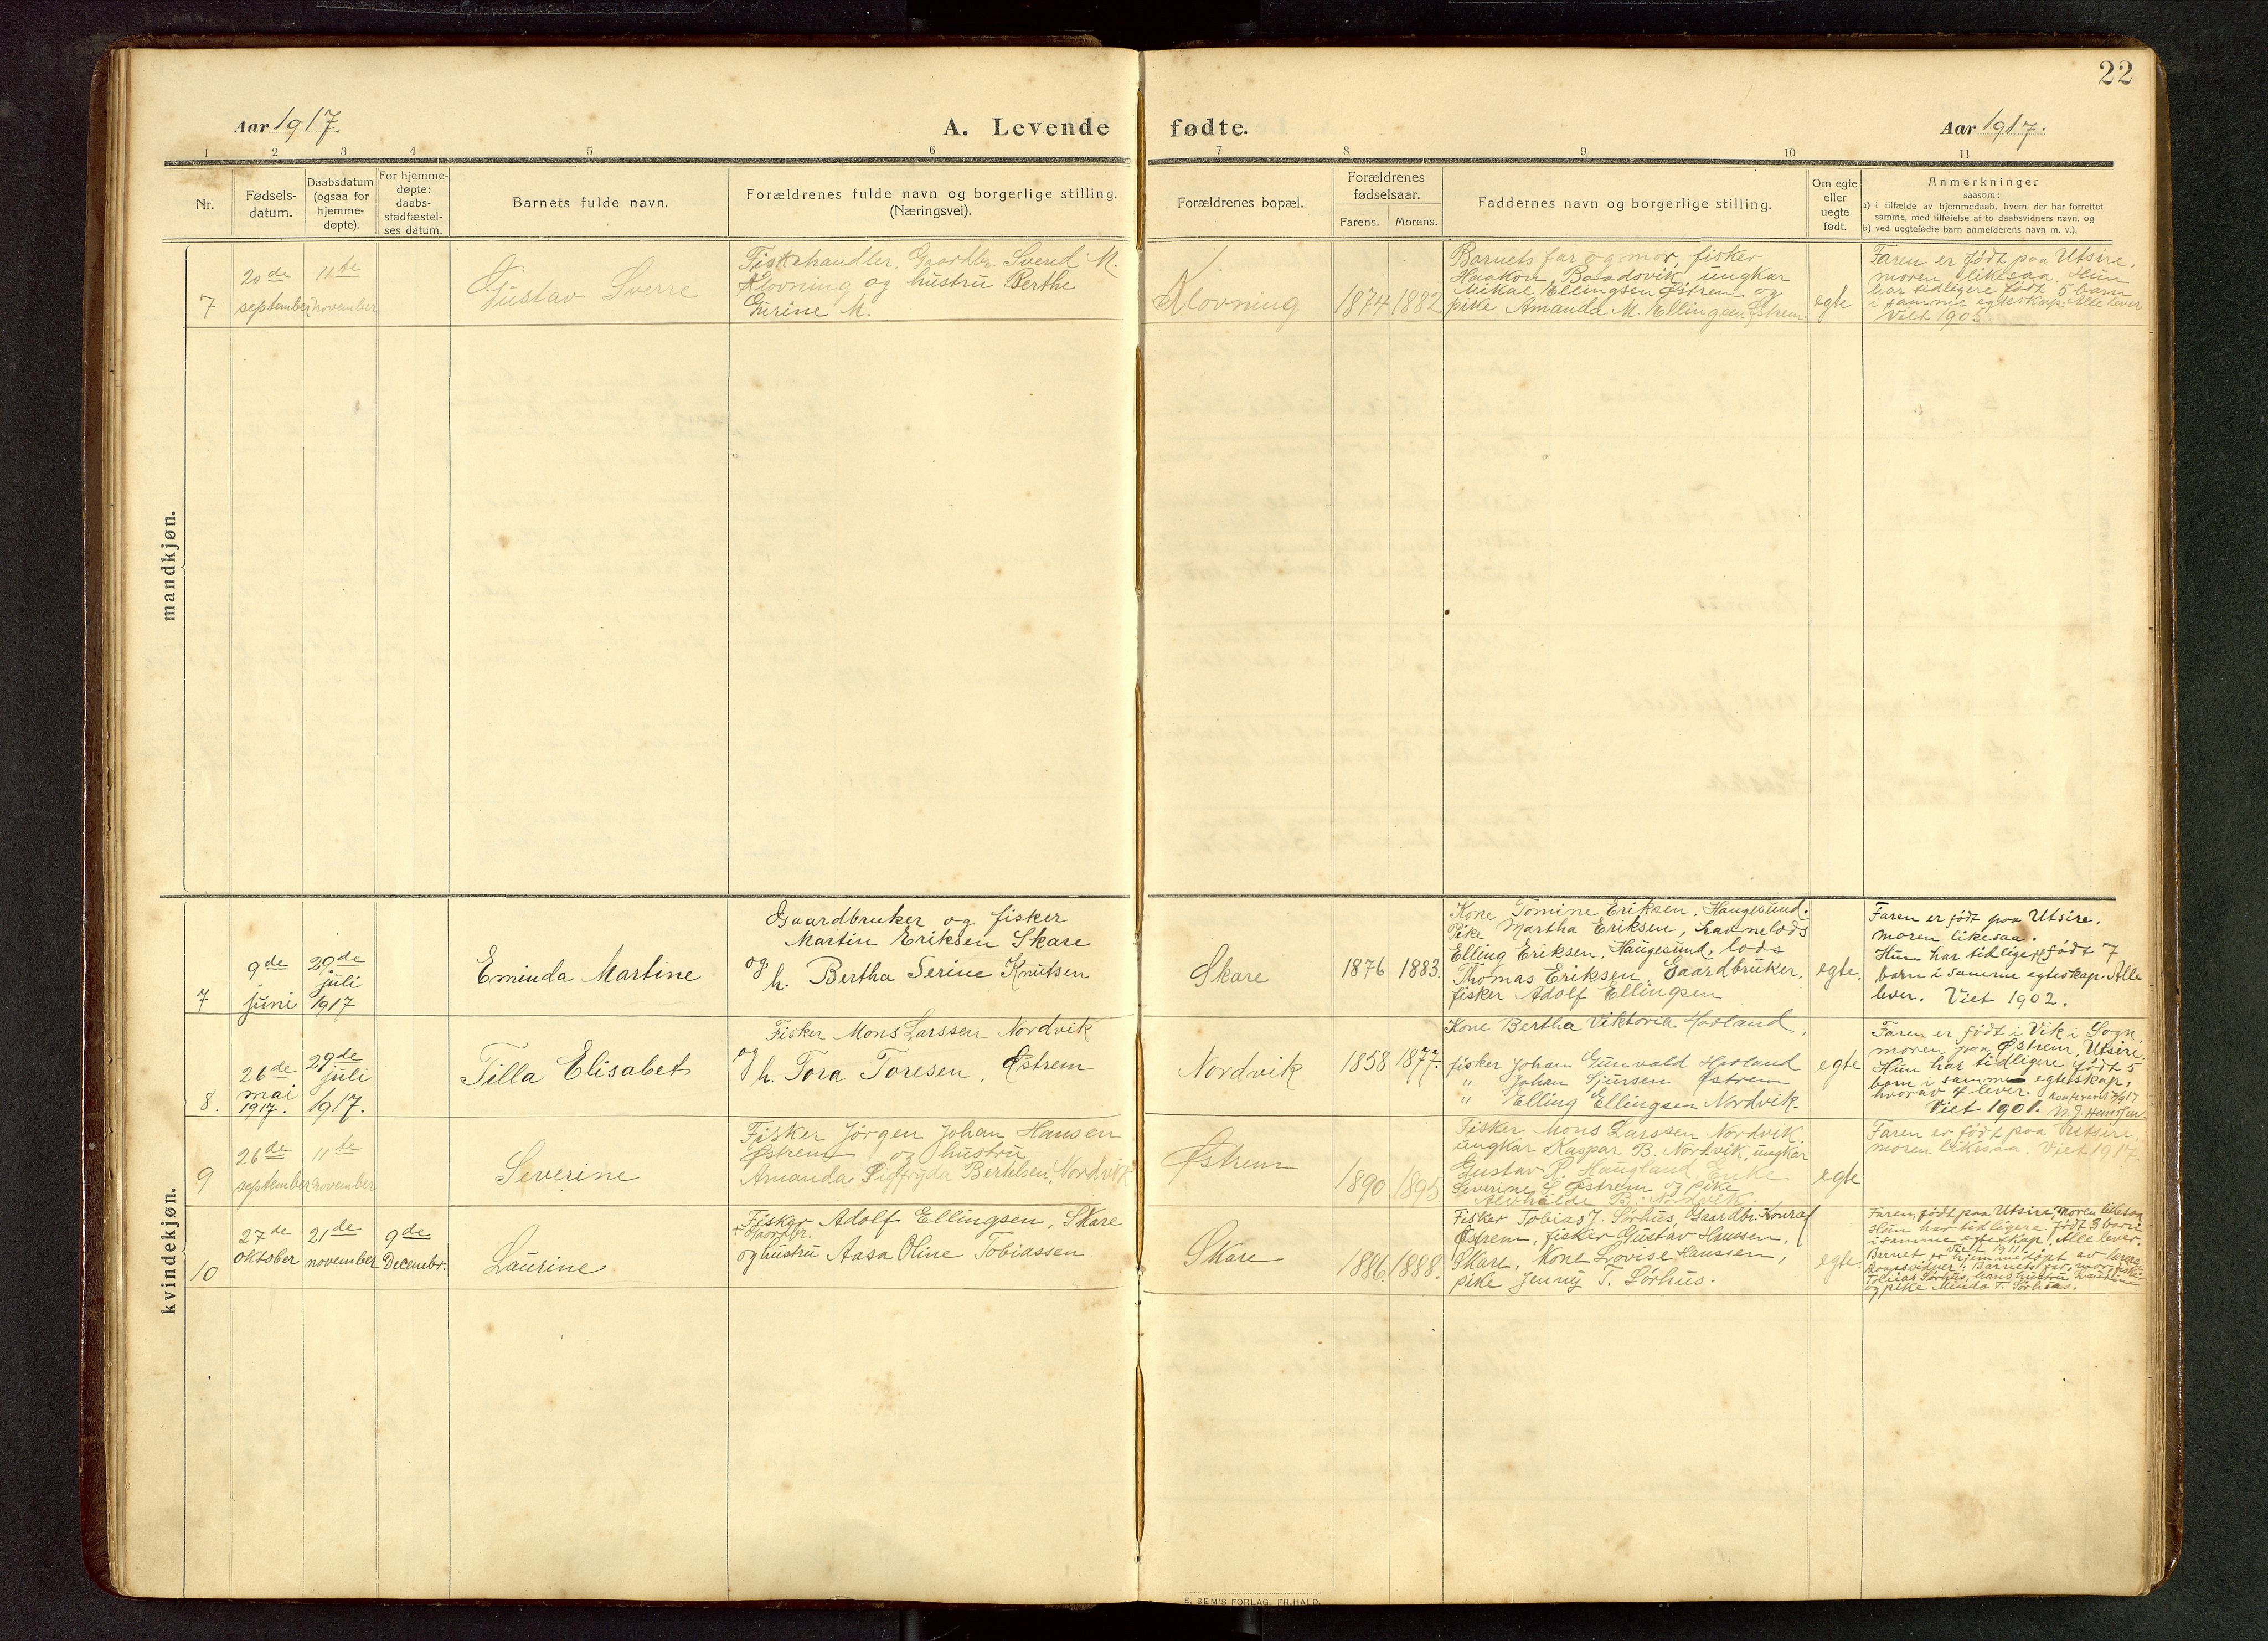 22
Aar 1917.
A. Levende fødte.
Aar 1917.
1 2 3 4 5 6 7 8 9 10 11
Nr.
Fødsels-
datum.
Daabsdatum
(ogsaa for
hjemme-
døpte).
For hjemme-
døpte:
daabs-
stadfæstel-
ses datum.
Barnets fulde navn.
Forældrenes fulde navn og borgerlige stilling.
(Næringsvei).
Forældrenes bopæl.
Forældrenes
fødselsaar.
Farens. Morens.
Faddernes navn og borgerlige stilling.
Om egte
eller
uegte
født.
Anmerkninger
saasom:
a) i tilfælde av hjemmedaab, hvem der har forrettet
samme, med tilføielse af to daabsvidners navn, og
b) ved uegtefødte barn anmelderens navn m. v.).
mandkjøn.
7
20de
september
11te
november
Gustav Sverre
Fiskehandler, Gaardbr. Svend M.
Klovning og hustru Berthe
Gurine M.
Klovning
1874
1882
Barnets far og mor, fisker
Haakon, ungkar
Mikal Ellingsen Østrem og
pike Amanda M. Ellingsen Østrem.
egte
Faren er født paa Utsire,
moren likesaa. Hun
har tidligere født 5 barn
i samme egteskap. Alle lever
Viet 1905.
kvindekjøn.
7
9de
juni
29de
juli
1917
Eminda Martine
Gaardbruker og fisker
Martin Eriksen Skare
og
h. Bertha Serine Knutsen
Skare
1876
1883.
Kone Tomine Eriksen, Haugesund.
Pike Martha Eriksen, havnelods
Elling Eriksen, Haugesund, lods
Thomas Eriksen, Gaardbruker,
fisker Adolf Ellingsen
egte.
Faren er født paa Utsire,
moren likesaa.
Hun har tidligere født 7
barn i samme egteskap. Alle
lever. Viet 1902.
8.
26de
mai
1917.
29de
juli
1917.
Tilla Elisabet
Fisker Mons Larssen Nordvik
og
h. Tora Toresen, Østrem
Nordvik
1858
1877.
Kone Bertha Viktoria Hovland,
fisker Johan Gunvald Hovland
" Johan Sjursen Østrem
" Elling Ellingsen Nordvik.
egte
Faren er født i Vik i Sogn,
moren paa Østrem, Utsire.
Hun har tidligere født 5
barn i samme egteskap,
hvorav 4 lever.
Viet 1901.
9
26de
september
11te
november
Severine
Fisker Jørgen Johan Hansen
Østrem og hustru
Amanda Sigfryda Bertelsen, Nordvik
Østrem
1890
1895
Fisker Mons Larssen Nordvik,
ungkar Kaspar B. Nordvik, ungkar
Gustav R. Haugland, Enke
Severine S. Østrem og pike
Alvhilde B. Nordvik.
egte
Faren er født paa Utsire,
moren likesaa. Viet 1917.
10
27de
oktober
21de
november
9de
Decembr.
Laurine
Fisker Adolf Ellingsen, Skare
+ Gaardbr.
og hustru Aasa Oline Tobiassen.
Skare
1886.
1888.
Fisker Tobias J. Sørhus, Gaardbr. Konrad
Østrem, fisker Gustav Hanssen,
Skare, Kone Lovise Hanssen,
pike Jenny T. Sørhus.
egte.
Faren født paa Utsire, moren likesaa
Hun har tidligere født 3 barn
i samme egteskap. Alle lever.
Viet 1911.
Barnet er hjemmedøpt av
Daapsvidner: Barnets mor, fisker
Tobias Sørhus, hans hustru Laurine
og pike Minda T. Sørhus.
E. SEM'S FORLAG, FR.HALD.